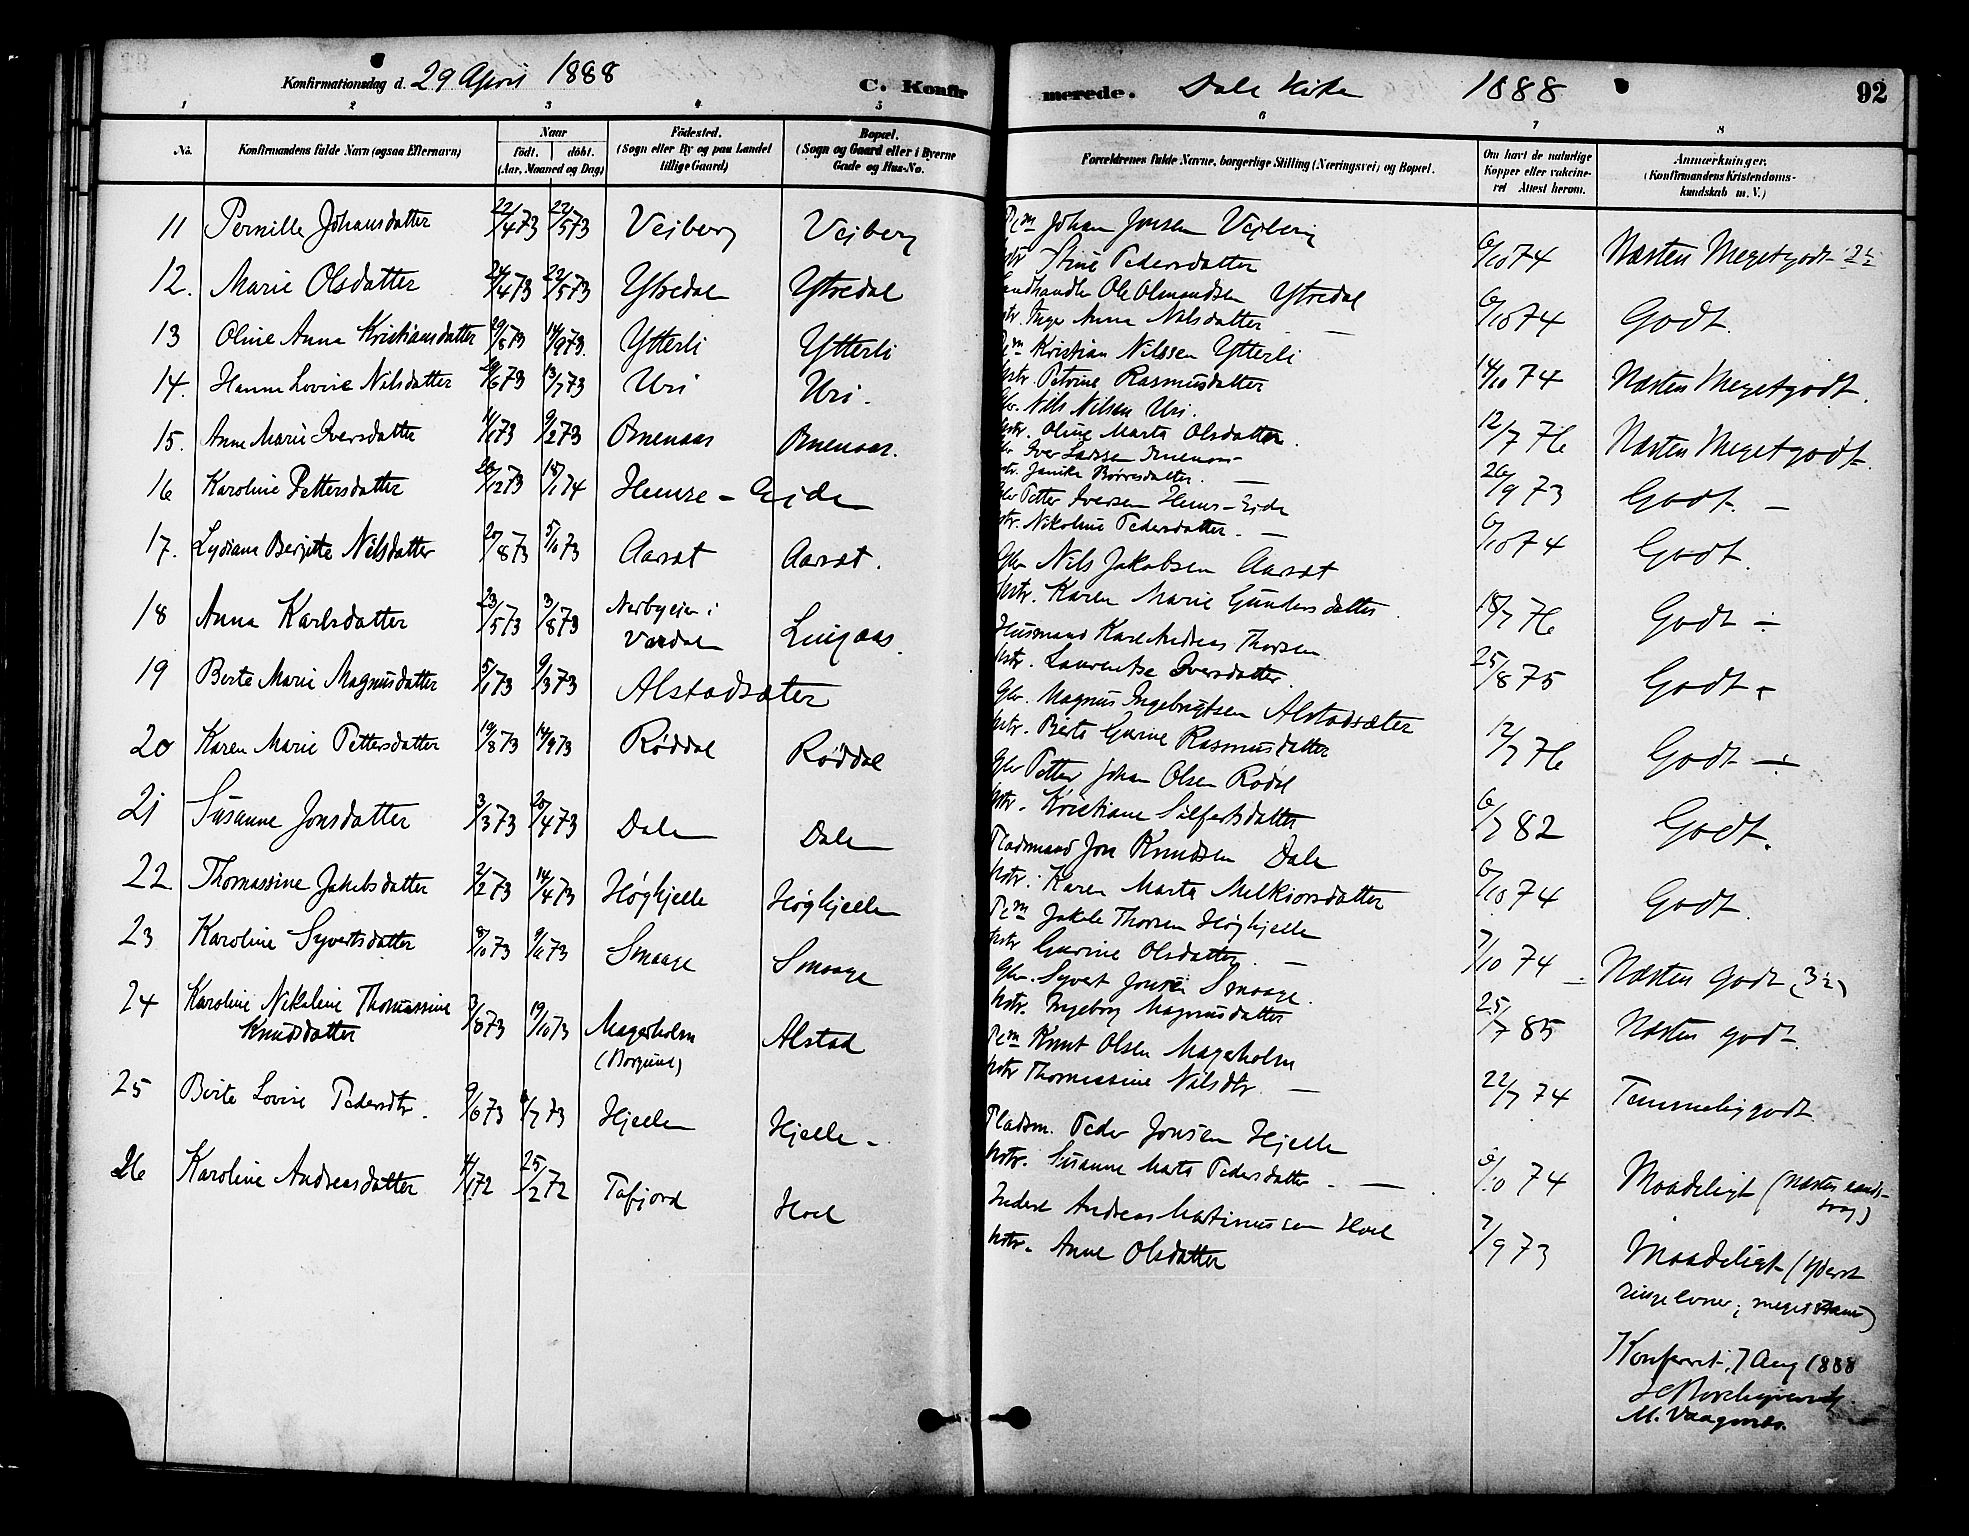 Konfirmationsdag d. 29 April 1888
C. Konfirmerede. Dale Kirke 1888 92
1 2 3 4 5 6 7 8
No.
Konfirmandens fulde Navn (ogsaa Efternavn)
Naar
født. døbt.
(Aar, Maaned og Dag)
Fødested.
(Sogn eller By og paa Landet
tillige Gaard)
Bopæl.
(Sogn og Gaard eller i Byerne
Gade og Hus-No.
Forældrenes fulde Navne, borgerlige Stilling (Næringsvei) og Bopæl.
Om havt de naturlige
Kopper eller vakcine-
ret Attest herom.
Anmærkninger.
(Konfirmandens Kristendoms-
kundskab m. V.)
11 Pernille Johansdatter 22/473 22/573 Veiberg Veiberg
Johan Jonsen Veiberg
Stine Pedersdatter 6/1074 Næsten Megetgodt
12. Marie Olsdatter 24/473 22/573 Ytredal Ytredal
Landhandler Ole Olmandsen Ytredal
Inger Anna Nilsdatter — 6/1074 Godt.
13 Oline Anna Kristiansdatter 14/973. Ytterli Ytterli
Kristian Nilssen Ytterli
Petrine Rasmusdatter 14/10 74 Næsten Megetgodt.
14. Hanna Lovise Nilsdatter 13/773 Uri Uri.
Nils Nilsen Uri.
Oline Marta Olsdatter. 12/7 76 Næsten Megetgodt.
15. Anne Marie Iversdatter 9/273 Omenaas Omenaas.
Iver Larssen Omenaas
Janike Børresdatter. — 26/9 73 Godt —
16 Karoline Pettersdatter 20/1273 18/174 Hemre - Eide
Gbr Petter Iversen Hemre-Eide
Nikoline Pedersdatter. — 6/1074 Godt.
17. Lydiane Berjitte Nilsdatter 20/873 5/1073 Aarset Aarset.
Gbr Nils Jakobsen Aarset
hstr. Karen Marie Gundersdatter. 18/7 76 Godt
18 Anna Karlsdatter 23/573 3/873 Nerbyeien i
Verdal Lingaas.
Husmand Karl Andreas Thorsen
hstr. Laurentse Iversdatter. 25/875 Godt
19 Berte Marie Magnusdatter 5/173 9/373 Alstadsæter
Gbr. Magnus Ingebrigtsen Alstadsæter
hstr. Berte Gurine Rasmusdatter 12/776 Godt
20 Karen Marie Pettersdatter 19/873 14/973 Røddal Røddal
Gbr Petter Johan Olsen Rødal
hstr. Kristiane Silfertsdatter 6/782 Godt.
21 Susanne Jonsdatter 3/373 20/473 Dale Dale
Pladsmand Jon Knudsen Dale
hstr. Karen Marte Melkiorsdatter 6/1074 Godt.
22 Thomassine Jakobsdatter 2/273 14/473 Høghjelle Høghjelle
Jakob Thorsen Høghjelle
hstr Gurine Olsdatter. — 7/10 74 Næsten Godt (3½)
23 Karoline Syvertsdatter 8/1073 Smaage Smaage
Gbr. Syvert Jonsen Smaage.
hstr. Ingeborg Magnusdatter 25/785 Næsten godt.
24 Karoline Nikoline Thomassine
Knudsdatter 3/873 19/1073 Magerholm
(Borgund) Alstad
Knut Olsen Magerholm
hstr Thomassine Nilsdtr. — 22/7 74 Temmelig godt
25 Berte Lovise Pedersdtr. 9/673 6/773 Hjelle Hjelle -
Pladsm. Peder Jonsen Hjelle
hstr. Susanne Marte Pedersdatter - — 6/10 74 Maadeligt (Næsten
26 Karoline Andreasdatter 25/272 Tafjord Hoel
Inderst Andreas Martinussen Hoel
hstr. Anne Olsdatter 7/973 Maadeligt (yderst
ringe evner; meget
Konfereret. 7 Aug 1888
M. Vaagenes.